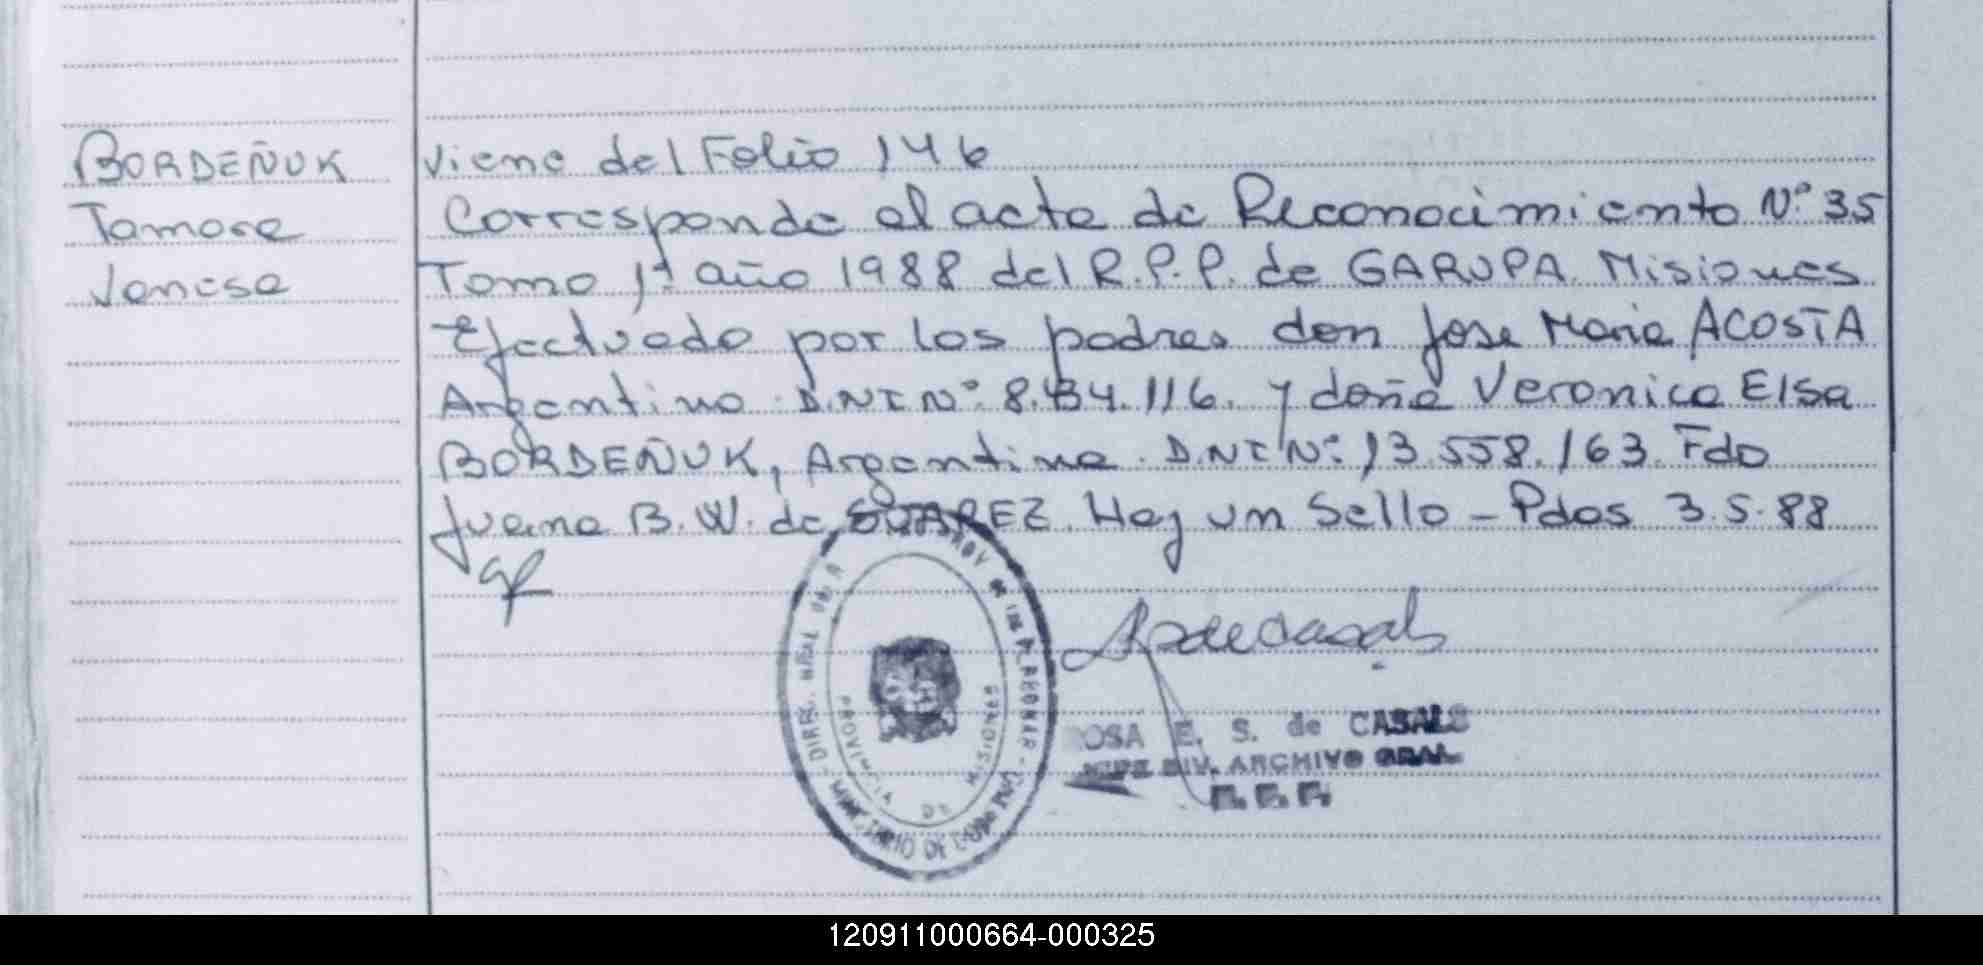 BORDEÑUK
Tamara
Vanesa
Viene del Folio 146
Corresponde al acta de Reconocimiento Nº 35
Tomo 1º año 1988 del R.P.P. de GARUPA. Misiones
Efectuado por los padres don Jose Maria ACOSTA
Argentino. D.N.I Nº: 8.434.116. y doña Veronica Elsa
BORDEÑUK, Argentina. D.N.I Nº: 13.558.163. Fdo
Juana B. W. de SUAREZ. Hay un Sello - Pdas 3.5.88
PROVINCIA DE MISIONES
ROSA E. S. de CASALS
JEFE DIV. ARCHIVO GRAL.
120911000664-000325